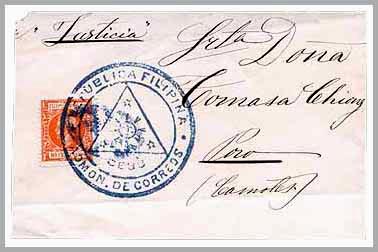 "Justicia"
Srta Doña
Tomasa Chiong
Poro
(Camotes)
REPUBLICA FILIPINA
CEBU
ADMON. DE CORREOS